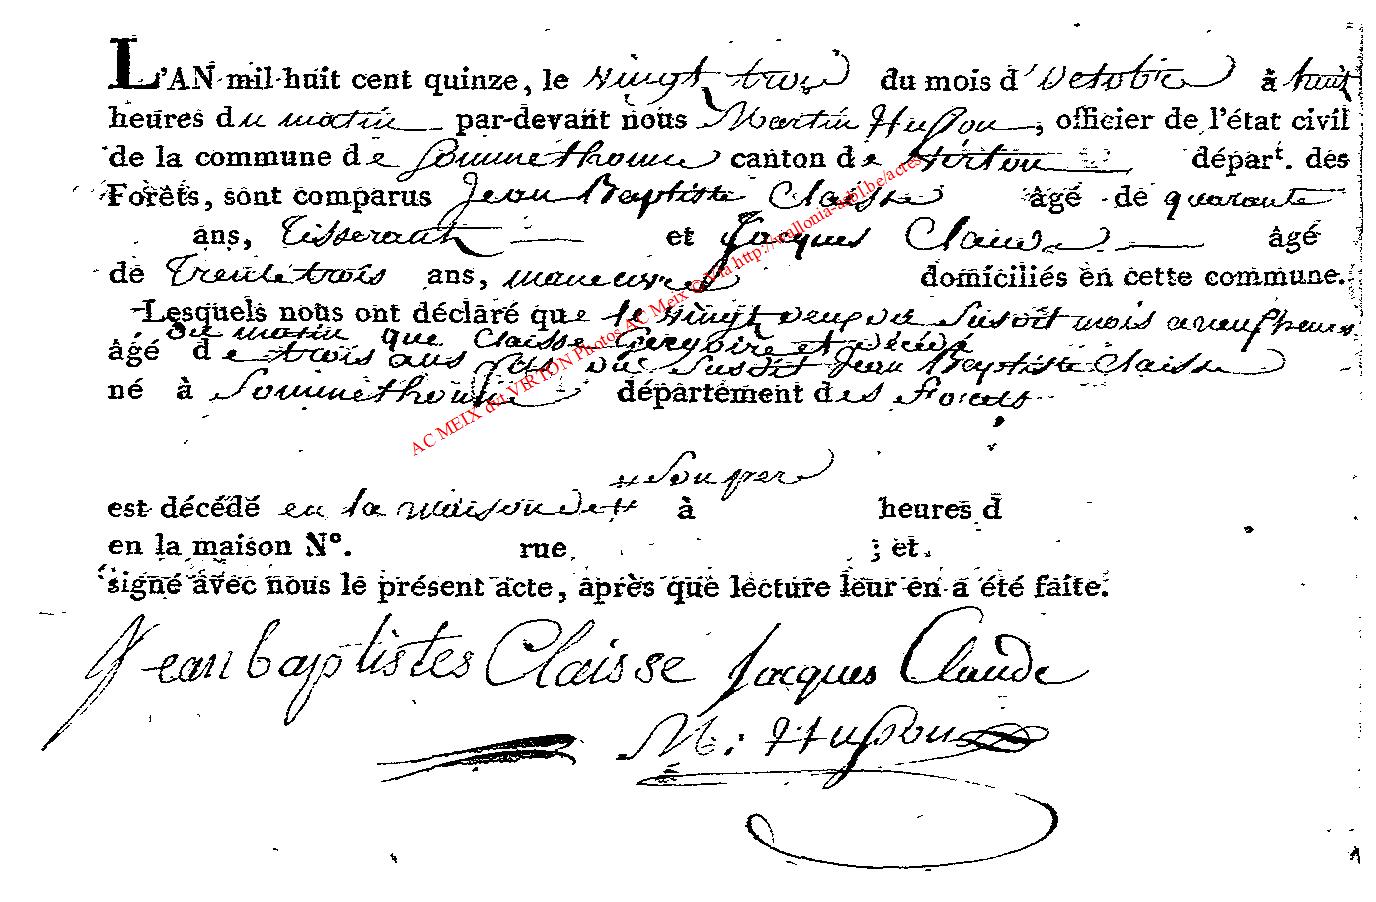 L'AN mil huit cent quinze, le vingt trois du mois d'octobre à huit
heures du matin par-devant nous Martin Husson, officier de l'état civil
de la commune de Sommethonne canton de Virton départ. des
Forêts, sont comparus Jean Baptiste Claisse âgé de quarante
ans, Tisserant et Jacques Claude âgé
de Trente trois ans, manœuvre domiciliés en cette commune.
Lesquels nous ont déclaré que le vingt deux du susdit mois a neuf heures
du matin que Claisse Gregoire est décédé
âgé de trois ans fils du susdit Jean Baptiste Claisse
né à Sommethonne département des Forets
# Son pere
est décédé en la maison de # à heures d
en la maison N°. rue ; et
signé avec nous le présent acte, après que lecture leur en a été faite.
Jean baptistes Claisse Jacques Claude
M: Husson
AC MEIX dvt VIRTON Photos AC Meix dvt via http://wallonia-asbl.be/actes